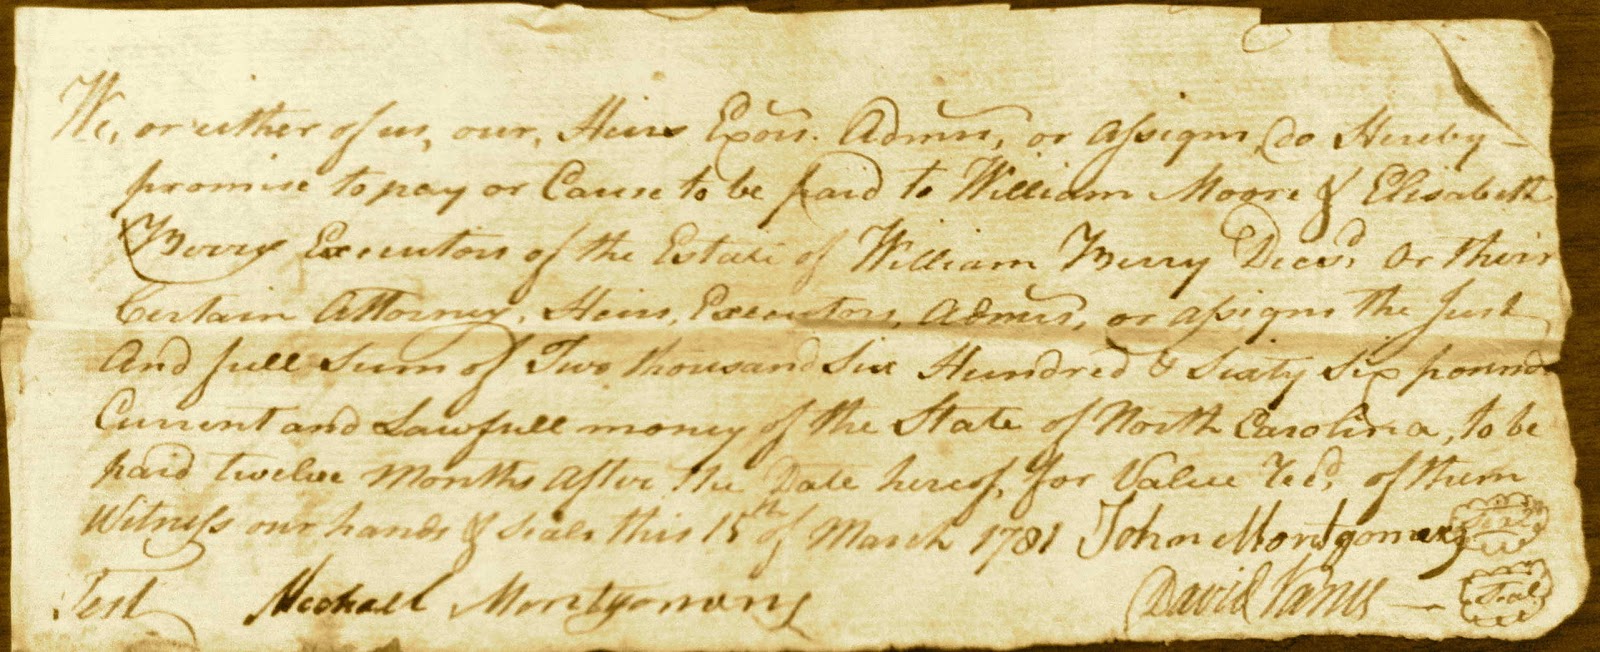 We, or either of us, our, Heirs Exors. Admrs, or assigns, do Hereby
promise to pay or Cause to be paid to William Moore & Elisabeth
Berry Executors of the Estate of William Berry Decd. or their
Certain Attorney, Heirs, Executors, Admrs, or assigns the Just
And full Sum of Two thousand Six Hundred & Sixty Six pounds
Current and Lawfull money of the State of North Carolina, to be
paid twelve Months after the Date hereof, for Value Recd. of them
Witness our hands & seals this 15th of March 1781 John Montgomery Seal
Test Mechall Montgomery David Seal